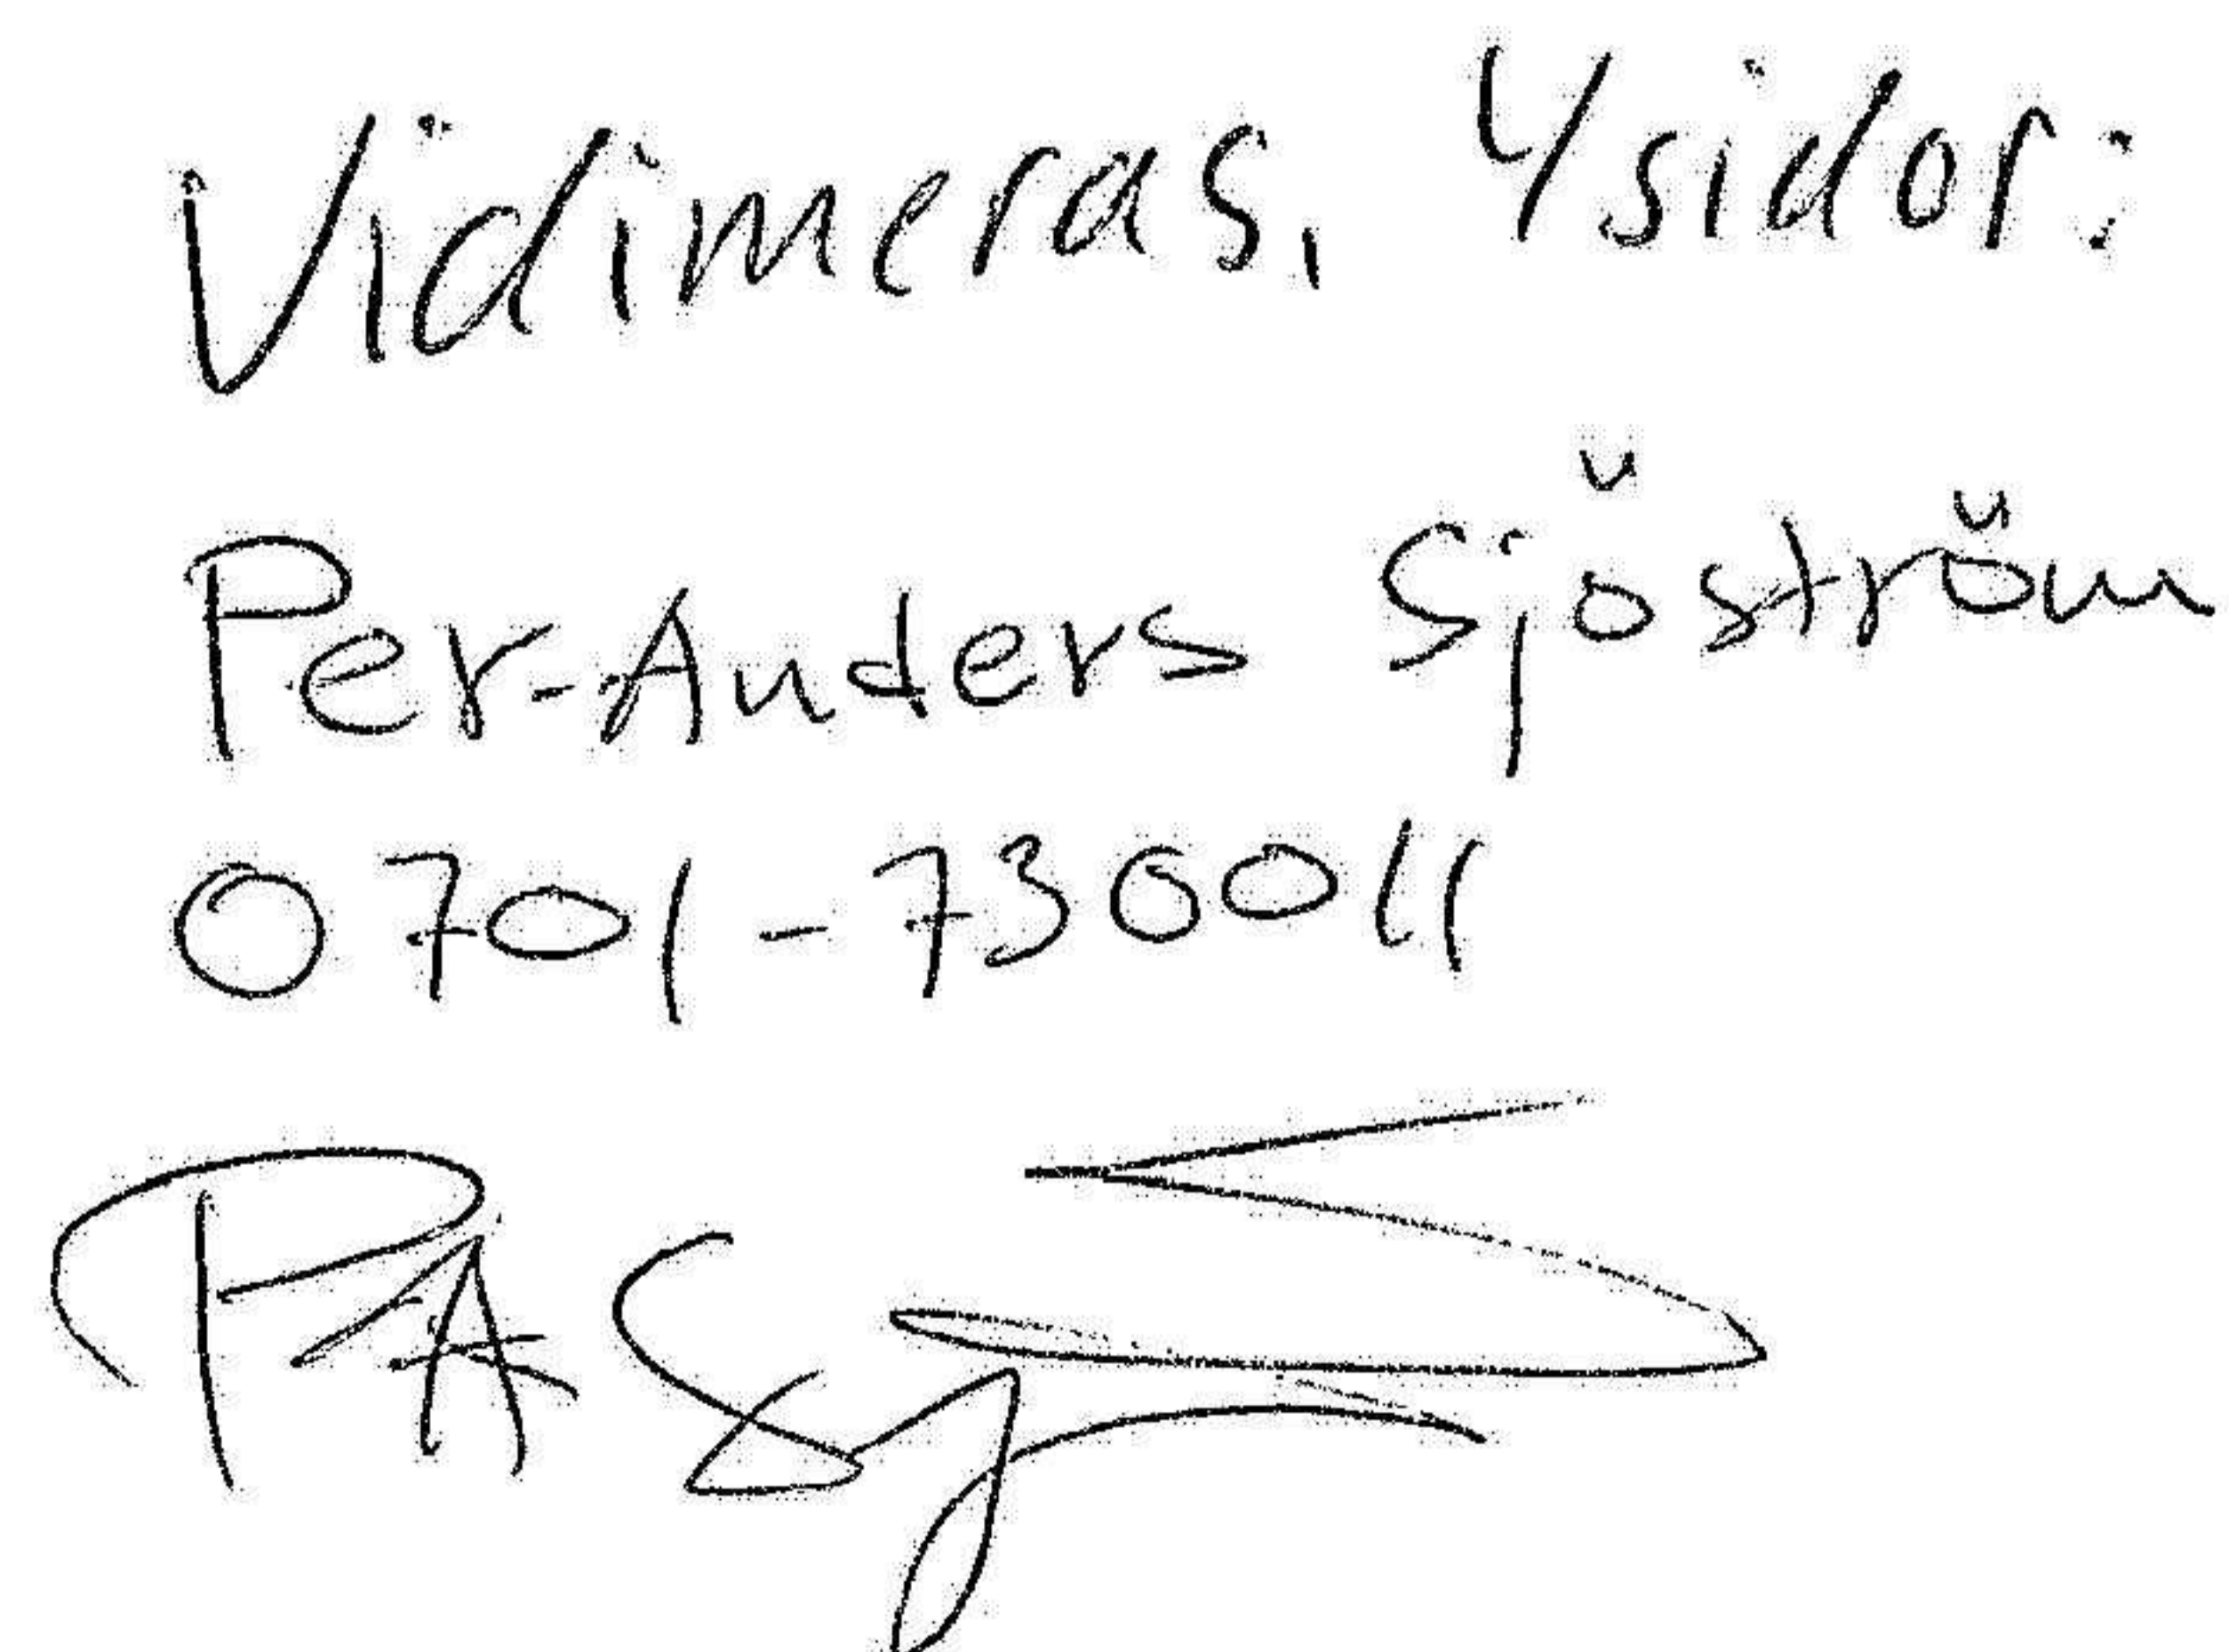 Vidimeras, 4 sidor:
Per-Anders Sjöström
0701-730011
PA Sj